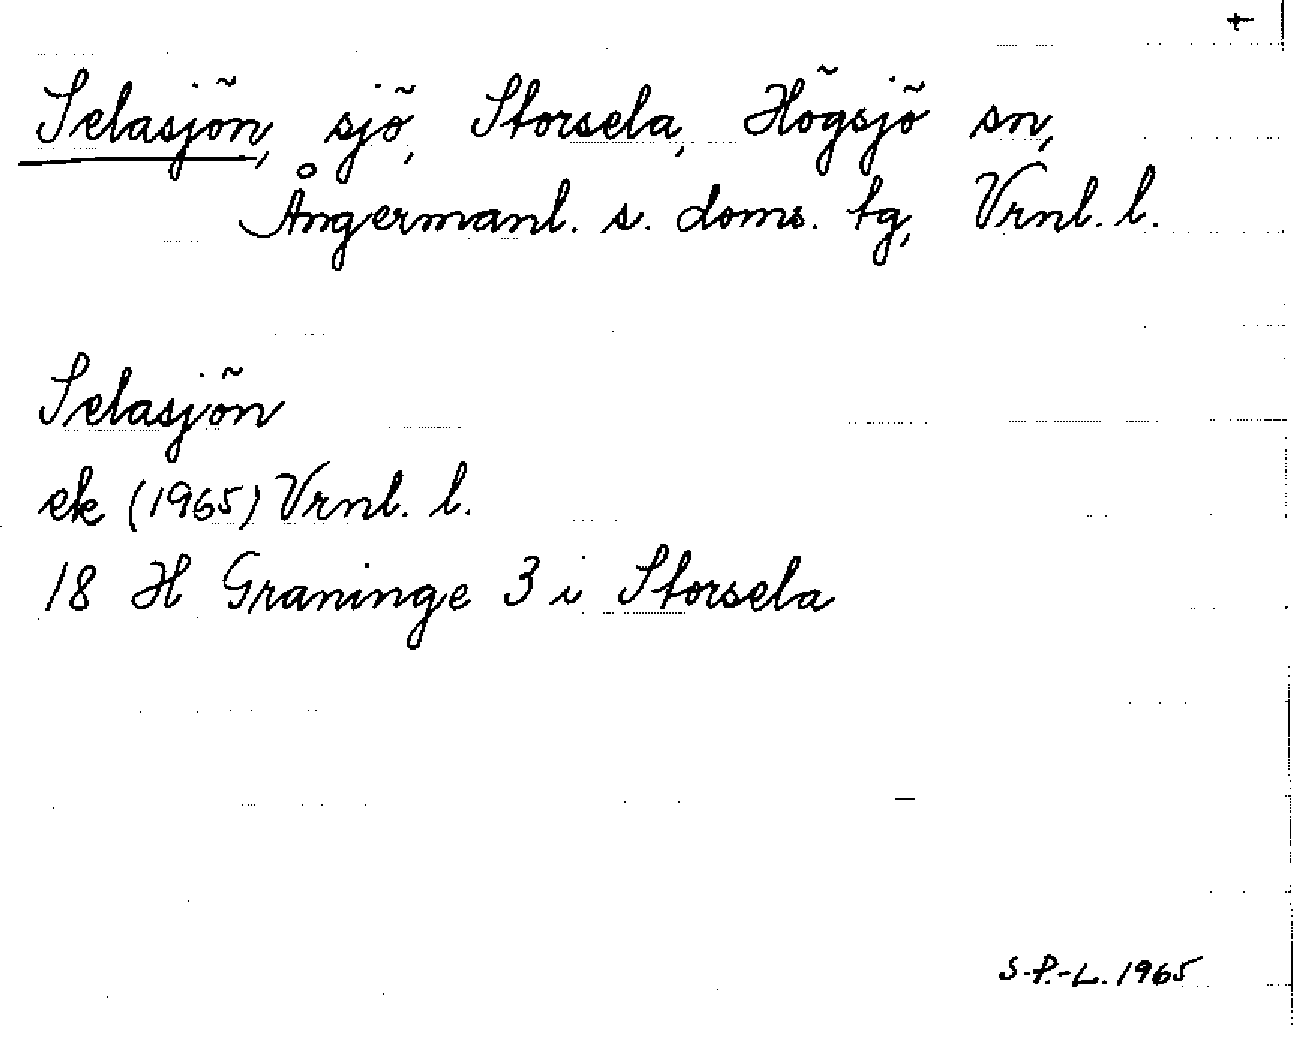 +
Selasjön, sjö, Storsela, Högsjö sn,
Ångermanl. s. doms. tg, Vrnl. l.
Selasjön
ek (1965) Vrnl. l.
18 H Graninge 3 i Storsela
S.P.-L. 1965